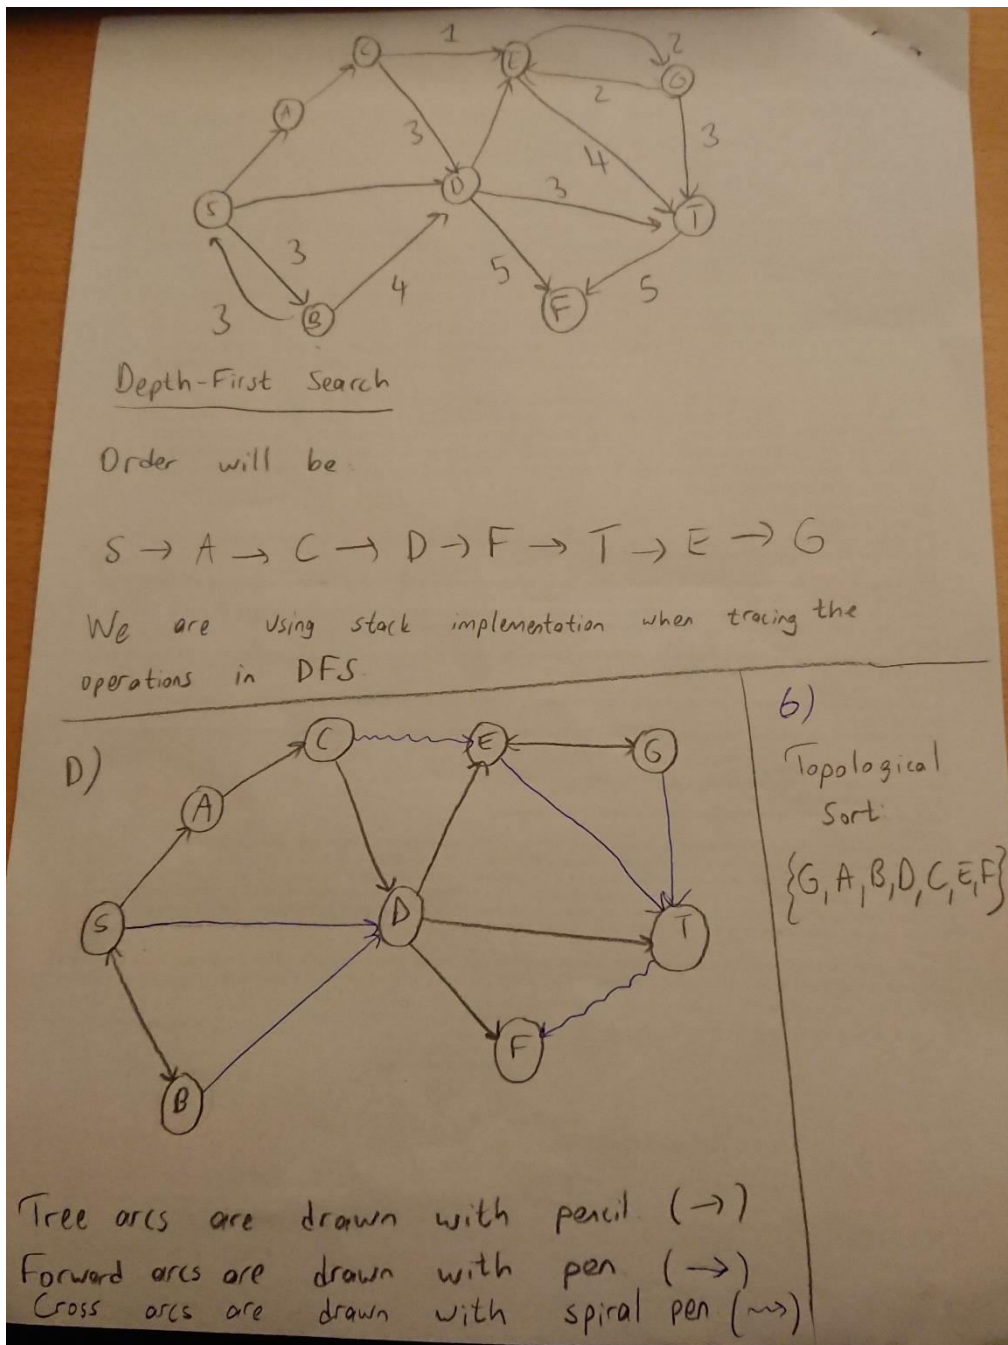 C
1
E
2
G
A
2
3
3
4
D
3
T
S
3
5
5
4
F
3
B
Depth-First Search
Order will be:
S → A → C → D → F → T → E → G
We are using stack implementation when tracing the
operations in DFS.
D)
C
E
G
A
S
D
T
F
B
6)
Topological
Sort:
{G, A, B, D, C, E, F}
Tree arcs are drawn with pencil (→)
Forward arcs are drawn with pen (→)
Cross arcs are drawn with spiral pen (⇝)